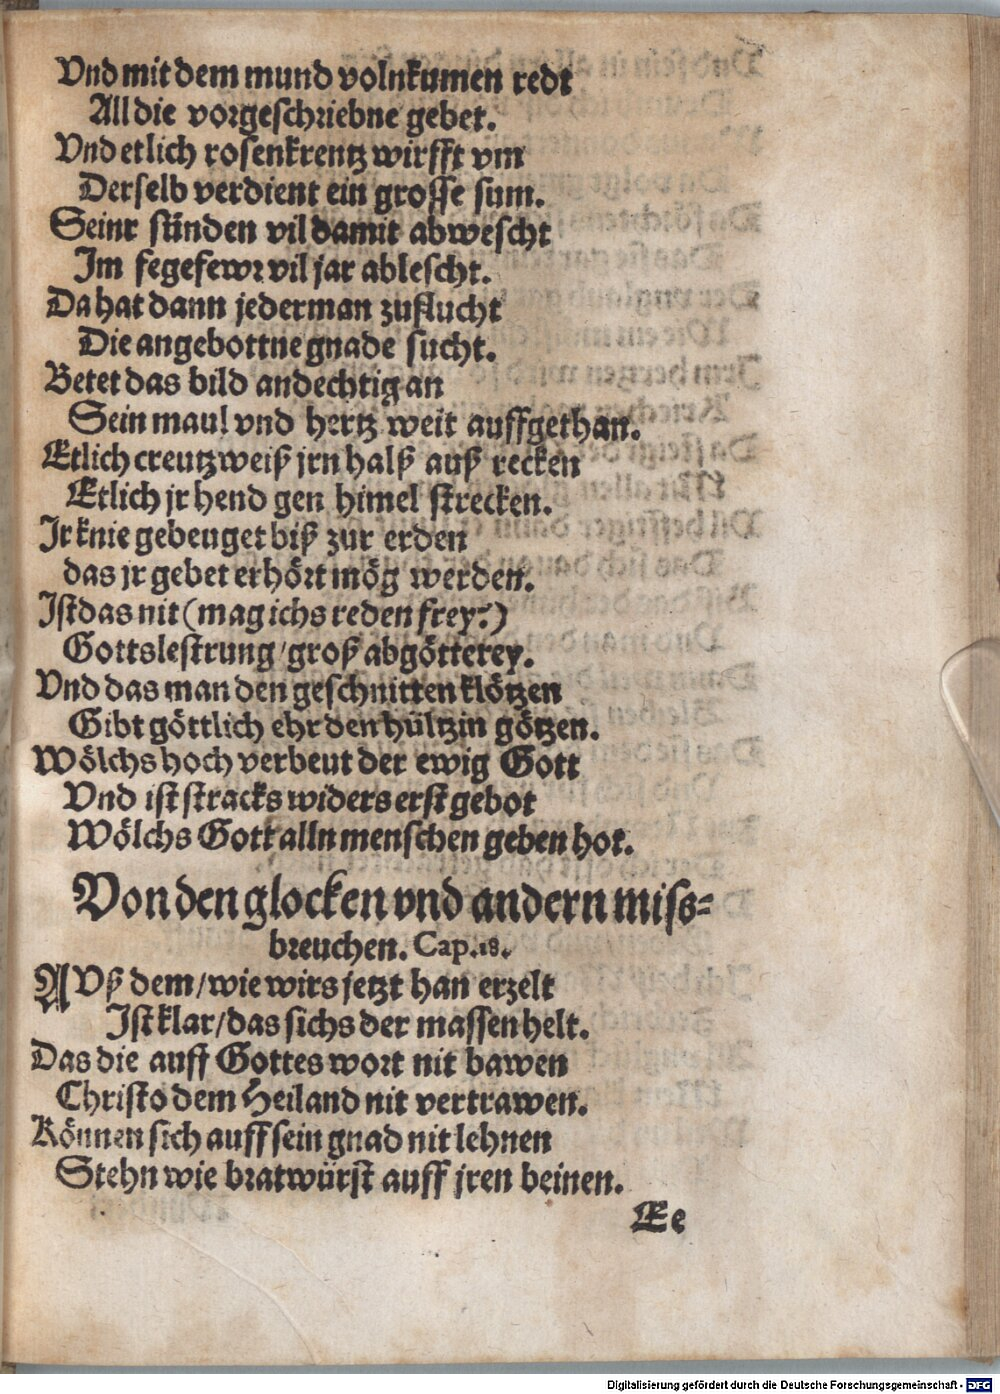 Vnd mit dem mund volnkumen redt
All die vorgeschriebne gebet.
Vnd etlich rosenkrentz wirfft vm
Derselb verdient ein grosse sum.
Seinr sünden vil damit abwescht
Im fegefewr vil jar ablescht.
Da hat dann jederman zuflucht
Die angebottne gnade sucht.
Betet das bild andechtig an
Sein maul vnd hertz weit auffgethan.
Etlich creutzweiß jrn halß auß recken
Etlich jr hend gen himel strecken.
Ir knie gebeuget biß zur erden
das jr gebet erhört mög werden.
Ist das nit (mag ichs reden frey?)
Gottslestrung/groß abgötterey.
Vnd das man den geschnitten klötzen
Gibt göttlich ehr den hültzin götzen.
Wölchs hoch verbeut der ewig Gott
Vnd ist stracks widers erst gebot
Wölchs Gott alln menschen geben hot.
Von den glocken vnd andern miss-
breuchen. Cap.18.
AVß dem/wie wirs jetzt han erzelt
Ist klar/das sichs der massen helt.
Das die auff Gottes wort nit bawen
Christo dem Heiland nit vertrawen.
Können sich auff sein gnad nit lehnen
Stehn wie bratwürst auff jren beinen.
Ee
Digitalisierung gefördert durch die Deutsche Forschungsgemeinschaft - DFG